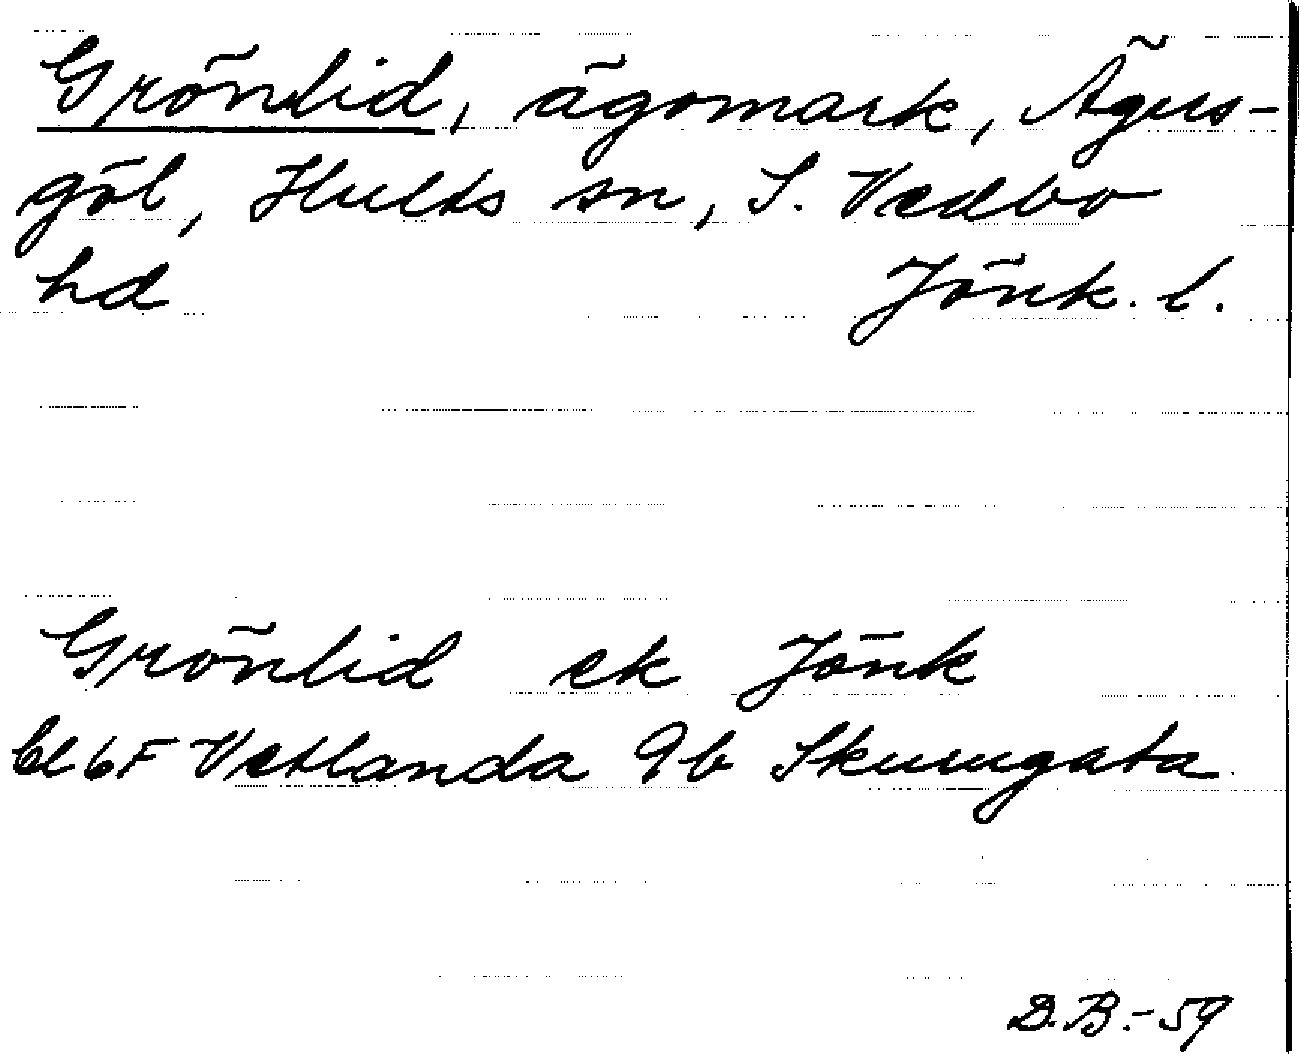 Grönlid, ägomark, Ägers-
göl, Hults sn, S. Vedbo
hd Jönk. l.
Grönlid ek Jönk
bl 6F Vetlanda 9b Skurugata
D.B.-59